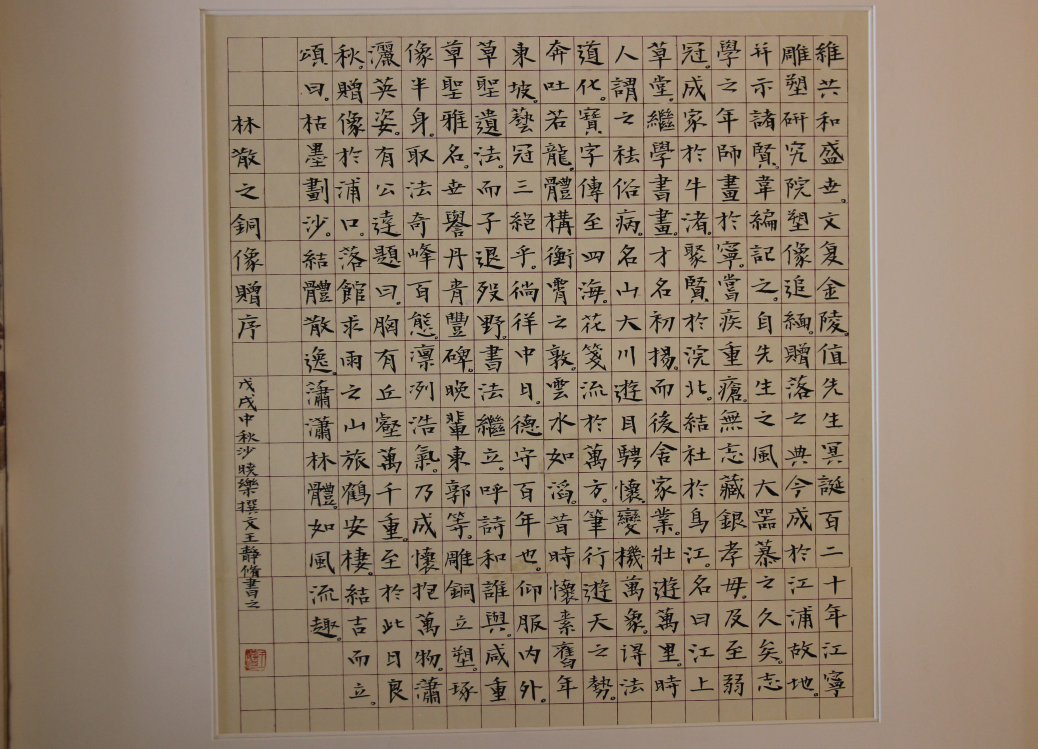 維共和盛世。文复金陵。值先生冥誕百二十年江寧
雕塑研究院塑像追緬。贈落之典今成於江浦故地。
并示諸賢。韋編記之。自先生之風大噐慕之久矣。志
學之年師畫於寧。嘗疾重瘡。無志藏銀孝毋。及至弱
冠。成家於牛渚。聚賢於浣北。結社於烏江。名曰江上
草堂。繼學書畫。才名初揚。而後舍家業。壯遊萬里。時
人謂之祛俗病。名山大川遊目騁懷。變機萬象。得法
道化。寶字傳至四海。花箋流於萬方。筆行遊天之勢。
奔吐若龍。體構衡霄之敦。雲水如滔。昔時懷素舊年
東坡。藝冠三絕乎。徜徉中日。德守百年也。仰服内外。
草聖遺法。而子退殁野。書法繼立。呼詩和誰與。咸重
草聖雅名。世譽丹青豐碑。晚輩東郭等。雕銅立塑。琢
像半身。取法奇峰百態。凛冽浩氣。乃成懷抱萬物。瀟
灑英姿。有公逵題曰。胸有丘壑萬千重。至於此日良
秋。贈像於浦口。落館求雨之山旅鶴安棲。結吉而立。
頌曰。枯墨劃沙。結體散逸。瀟瀟林體。如風流趣。
林散之銅像贈序
戊戌中秋沙樂撰文王靜脩書之